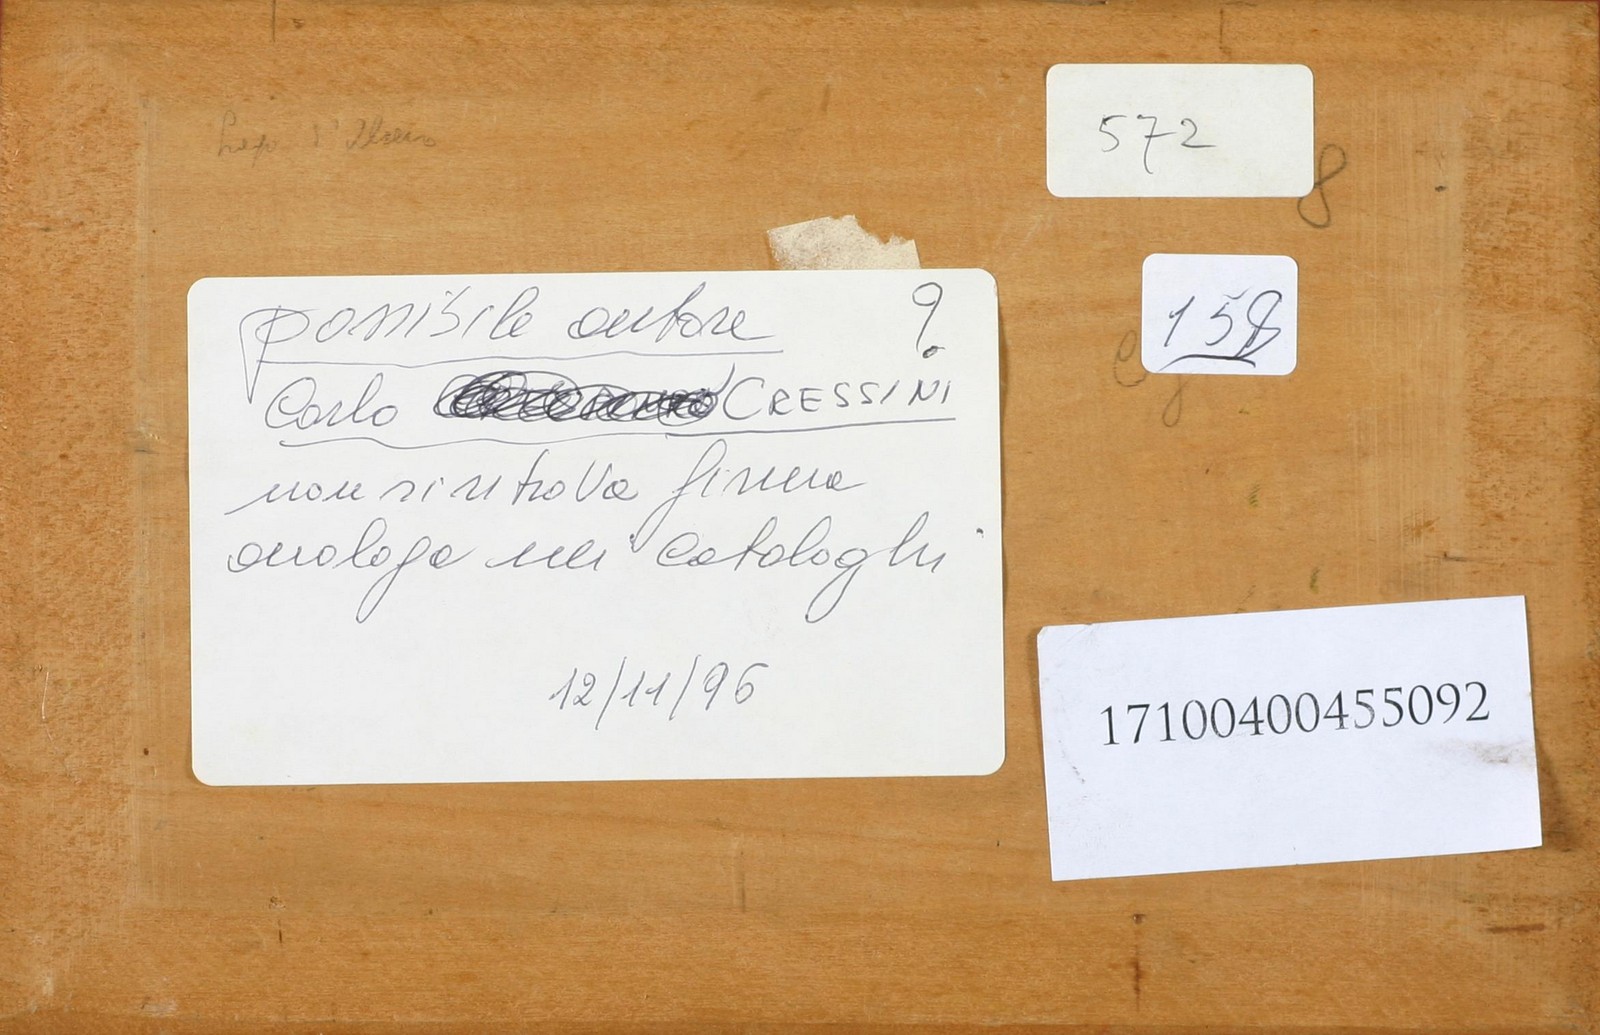 572
8
possibile autore ?
Carlo CRESSINI
non si ritrova firma
analoga nei cataloghi
12/11/96
158
17100400455092